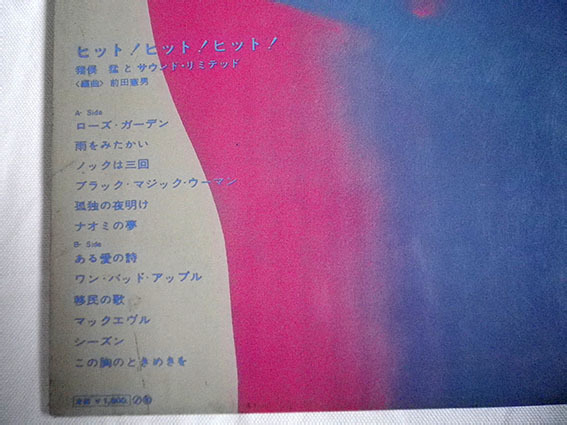 ヒット！ヒット！ヒット！
猪俣 猛 と サウンド・リミテッド
〈編曲〉前田憲男
A- Side
ローズ・ガーデン
雨をみたかい
ノックは三回
ブラック・マジック・ウーマン
孤独の夜明け
ナオミの夢
B- Side
ある愛の詩
ワン・バッド・アップル
移民の歌
マックエヴル
シーズン
この胸のときめきを
定価 ￥1,800.